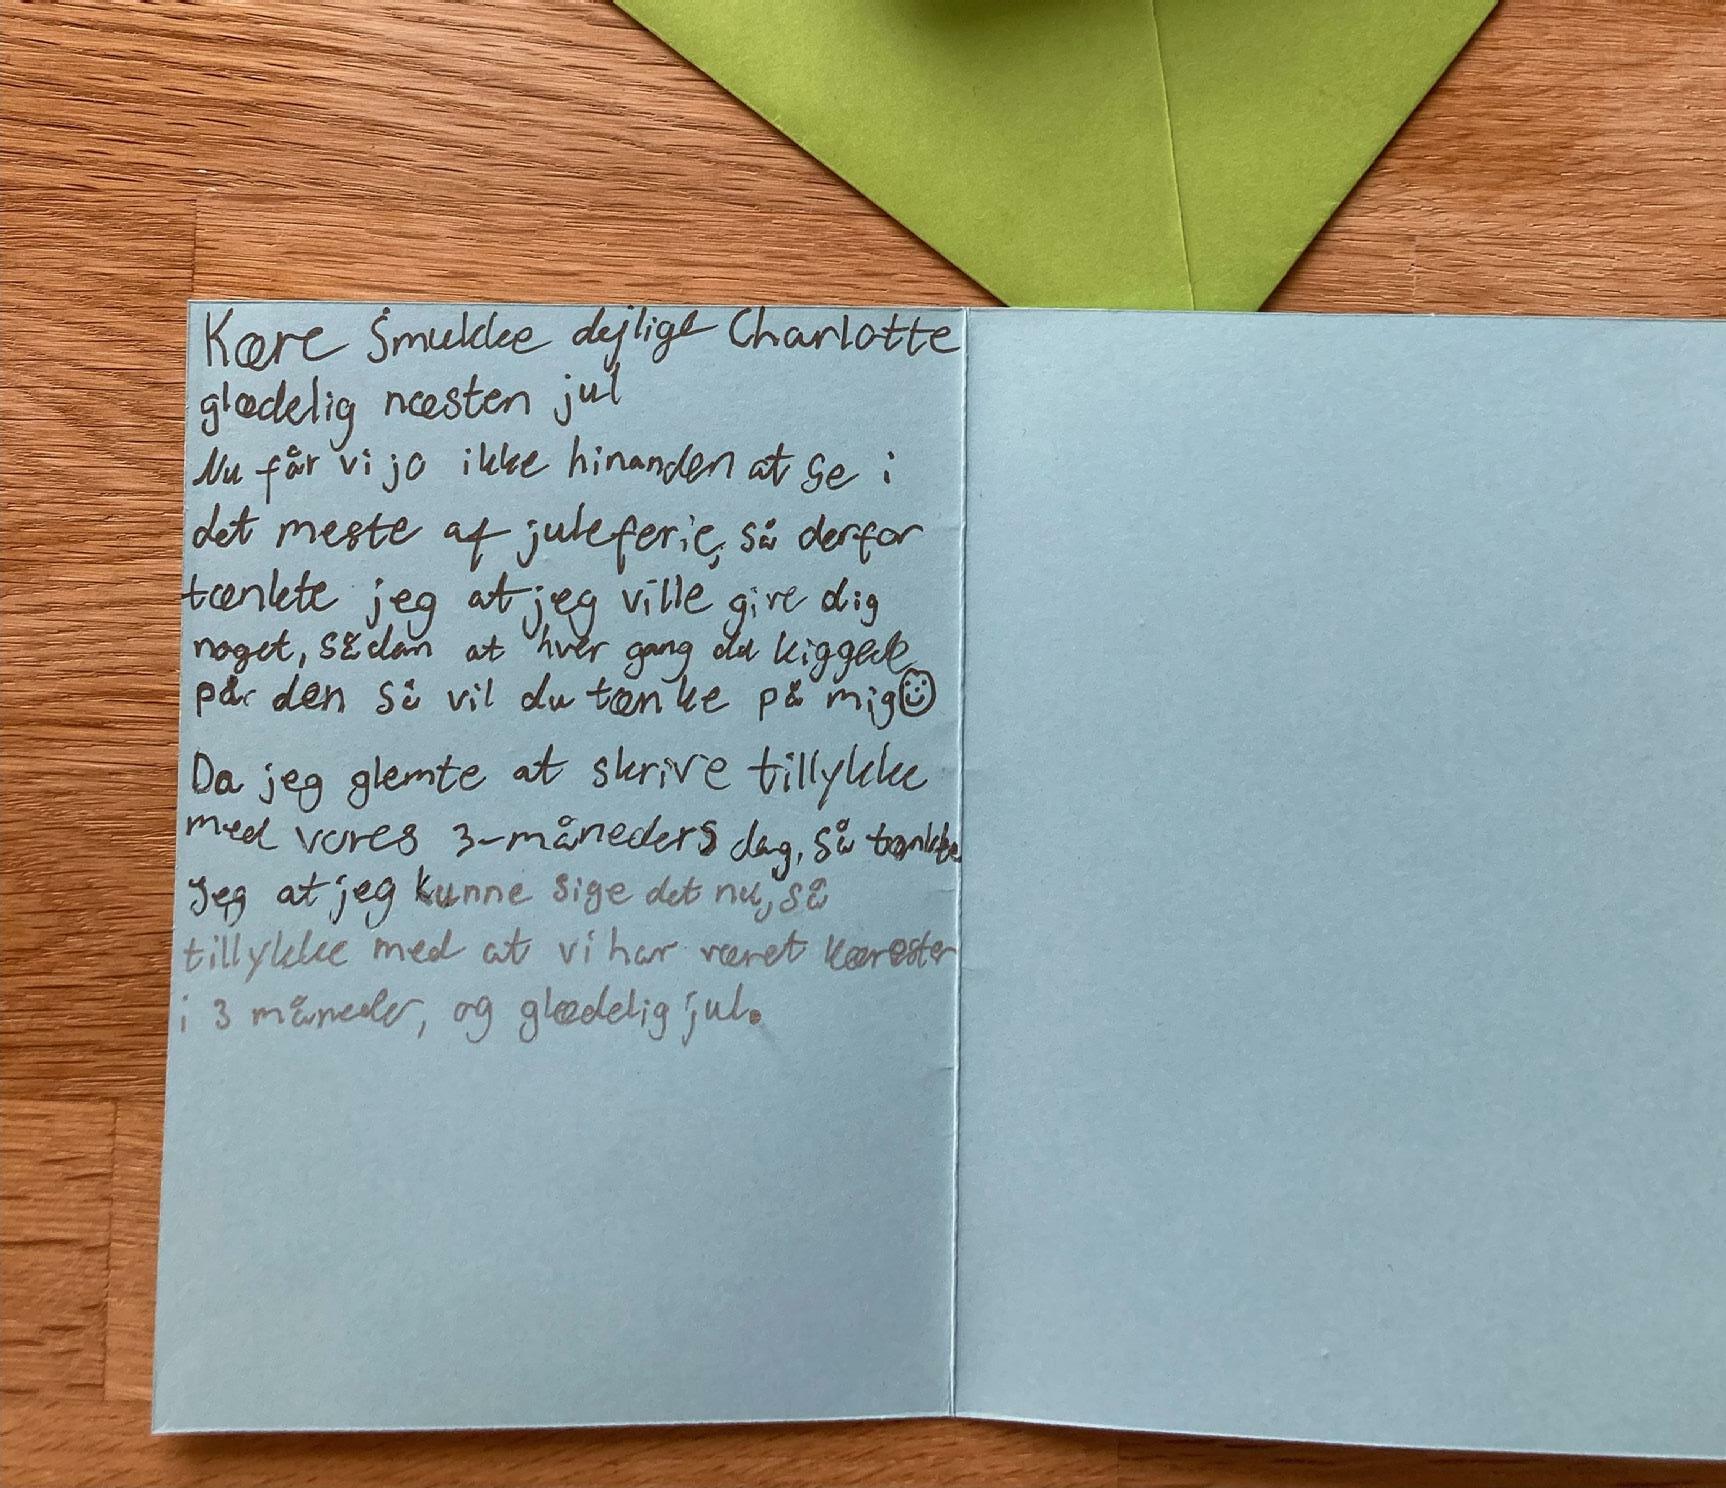 Kære smukke dejlige Charlotte
glædelig næsten jul
Nu får vi jo ikke hinanden at se i
det meste af juleferie, så derfor
tænkte jeg at jeg ville give dig
noget, sådan at hver gang du kigger
på den så vil du tænke på mig☺
Da jeg glemte at skrive tillykke
med vores 3-måneders dag, så tænkte
jeg at jeg kunne sige det nu, så
tillykke med at vi har været kærester
i 3 måneder, og glædelig jul.